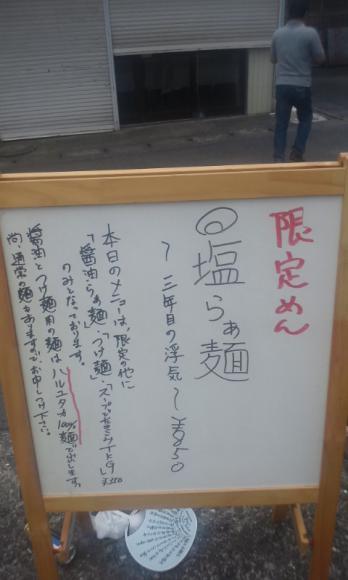 限定めん
◎塩らぁ麺
〜三年目の浮気〜 ¥850
本日のメニューは、限定の他に
「醤油らぁ麺」・「つけ麺」・
のみとなっております。
醤油とつけ麺用の麺はハルユタカ100%麺で出します。
尚、通常の麺もありますので、お申しつけ下さい。